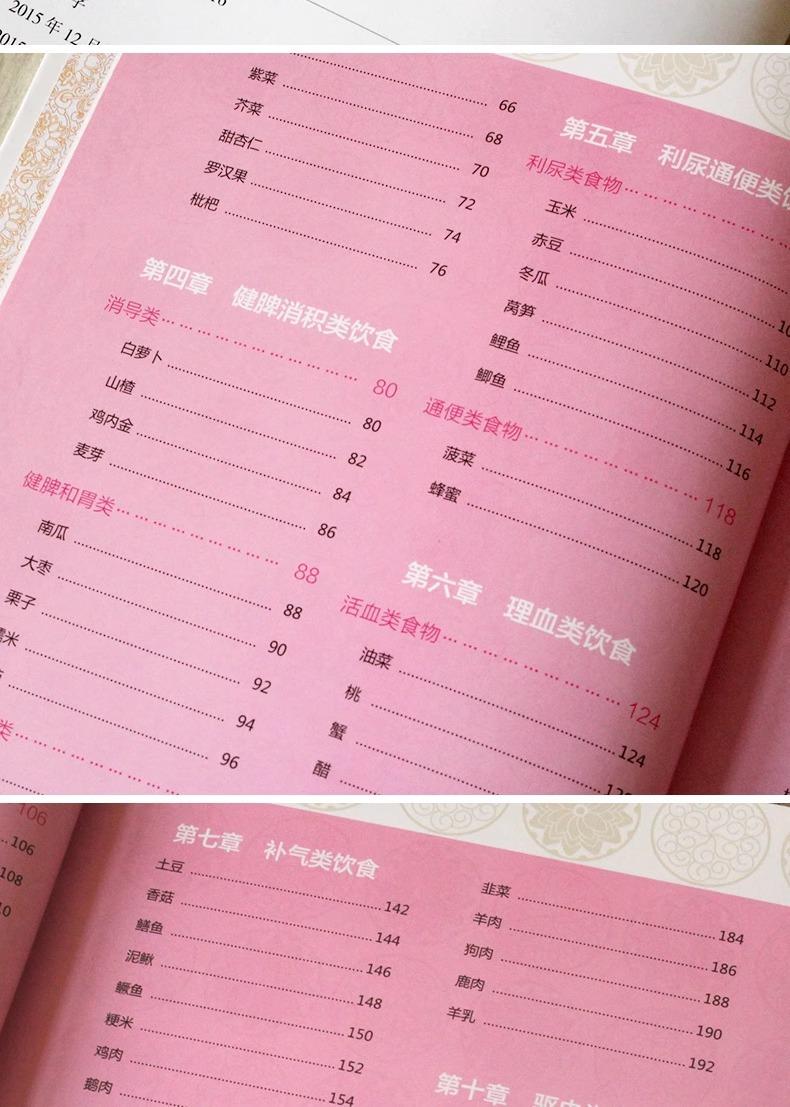 2015 年 12 月
66
紫菜 68
芥菜 70
甜杏仁 72
罗汉果 74
枇杷 76
第四章 健脾消积类饮食
消导类 80
白萝卜 80
山楂 82
鸡内金 84
麦芽 86
健脾和胃类 88
南瓜 88
大枣 90
栗子 92
米 94
96
类
第五章 利尿通便类
利尿类食物
玉米
赤豆
冬瓜 110
莴笋 112
鲤鱼 114
鲫鱼 116
通便类食物 118
菠菜 118
蜂蜜 120
第六章 理血类饮食
活血类食物 124
油菜 124
桃
蟹
醋
106
106
108
第七章 补气类饮食
土豆 142
香菇 144
鳝鱼 146
泥鳅 148
鳜鱼 150
粳米 152
鸡肉 154
鹅肉
韭菜 184
羊肉 186
狗肉 188
鹿肉 190
羊乳 192
第十章